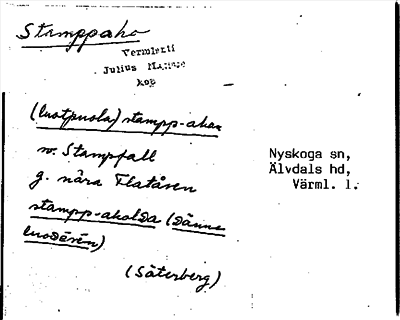 Stamppaho
Vermlanti
Julius
kop
(luotpuola) stampp-ahan
n. Stampfall
g. nära Flatåsen
stampp-aholda (dänne
luodésén)
(Säterberg)
Nyskoga sn,
Älvdals hd,
Värml. l.